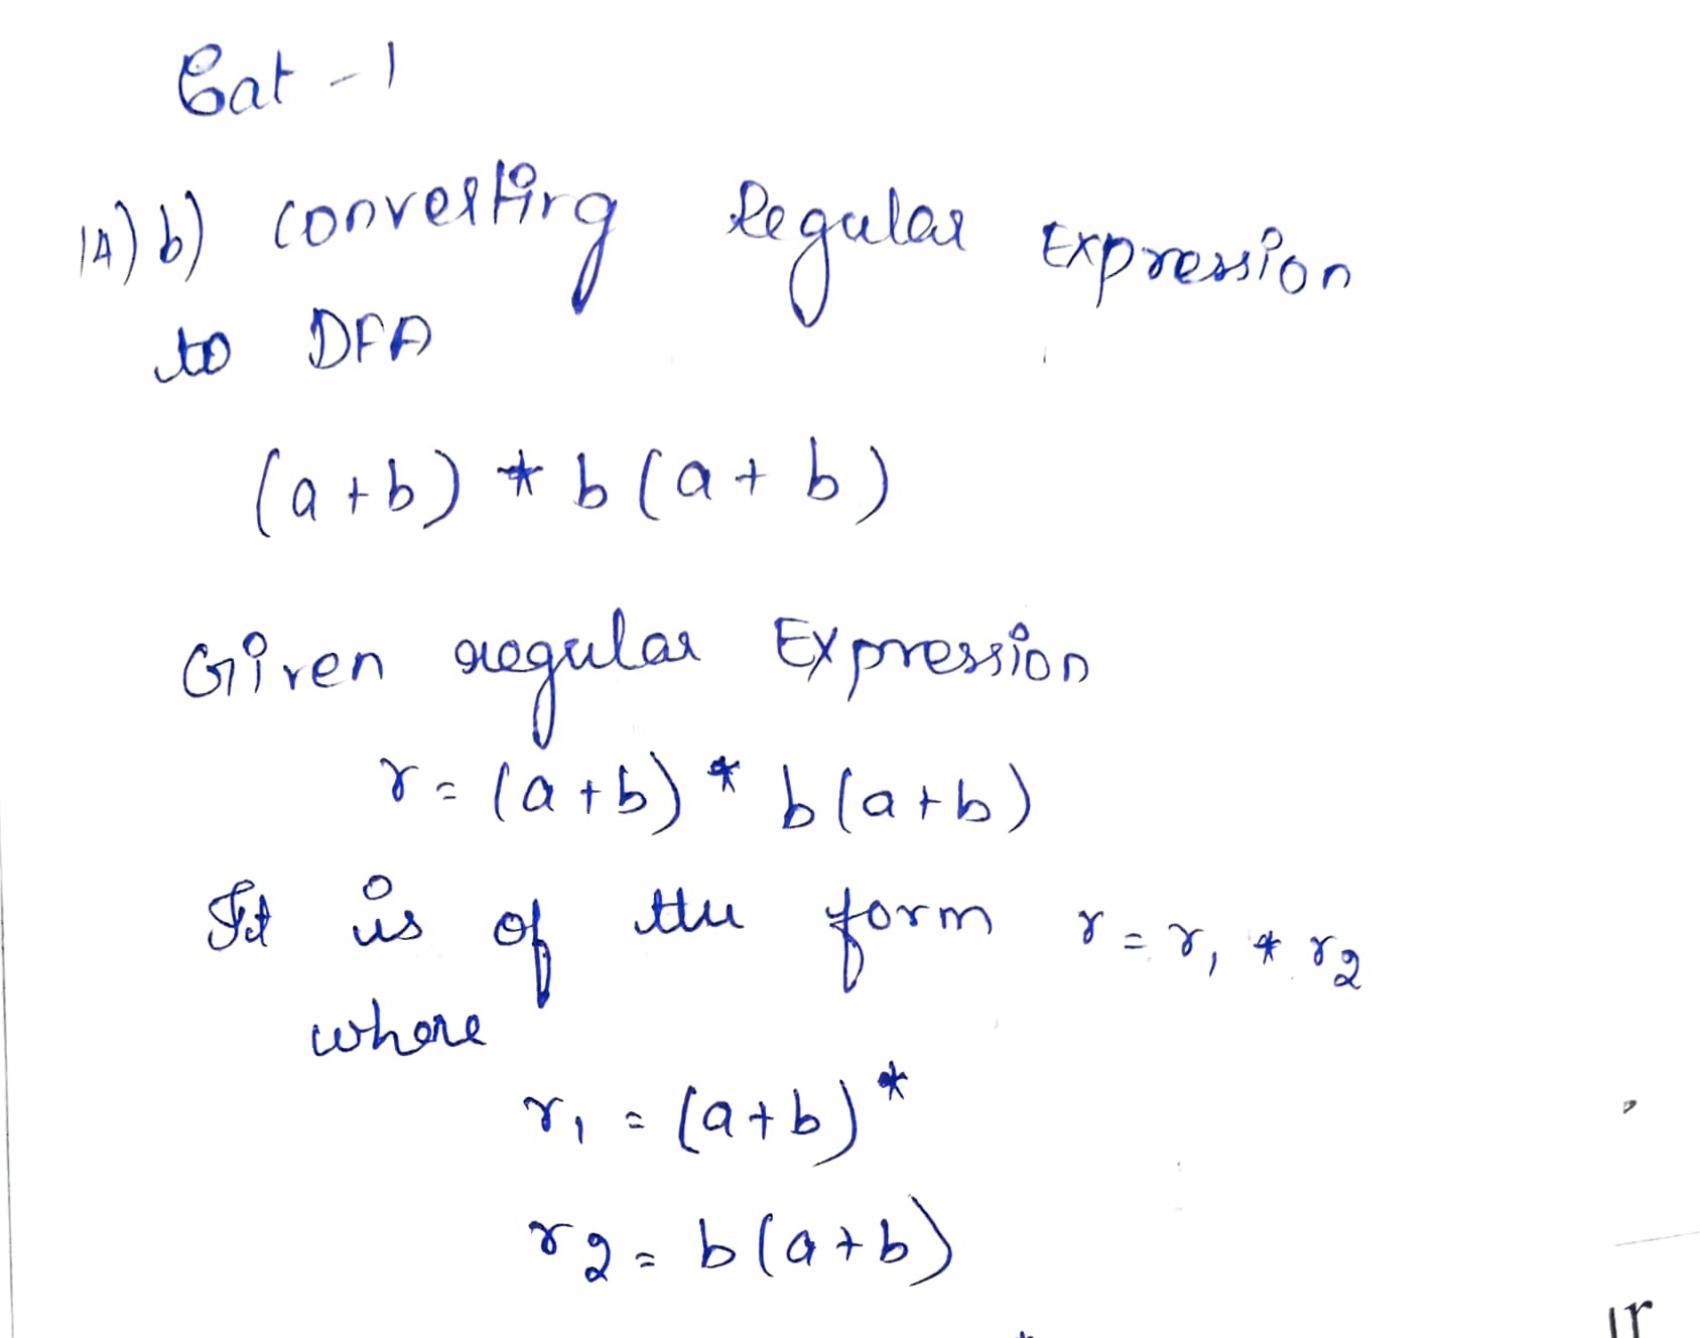 Cat - 1
14) b) converting Regular Expression
to DFA
(a+b) * b (a+b)
Given regular Expression
r = (a+b) * b(a+b)
It is of the form r = r1 * r2
where
r1 = (a+b)*
r2 = b(a+b)